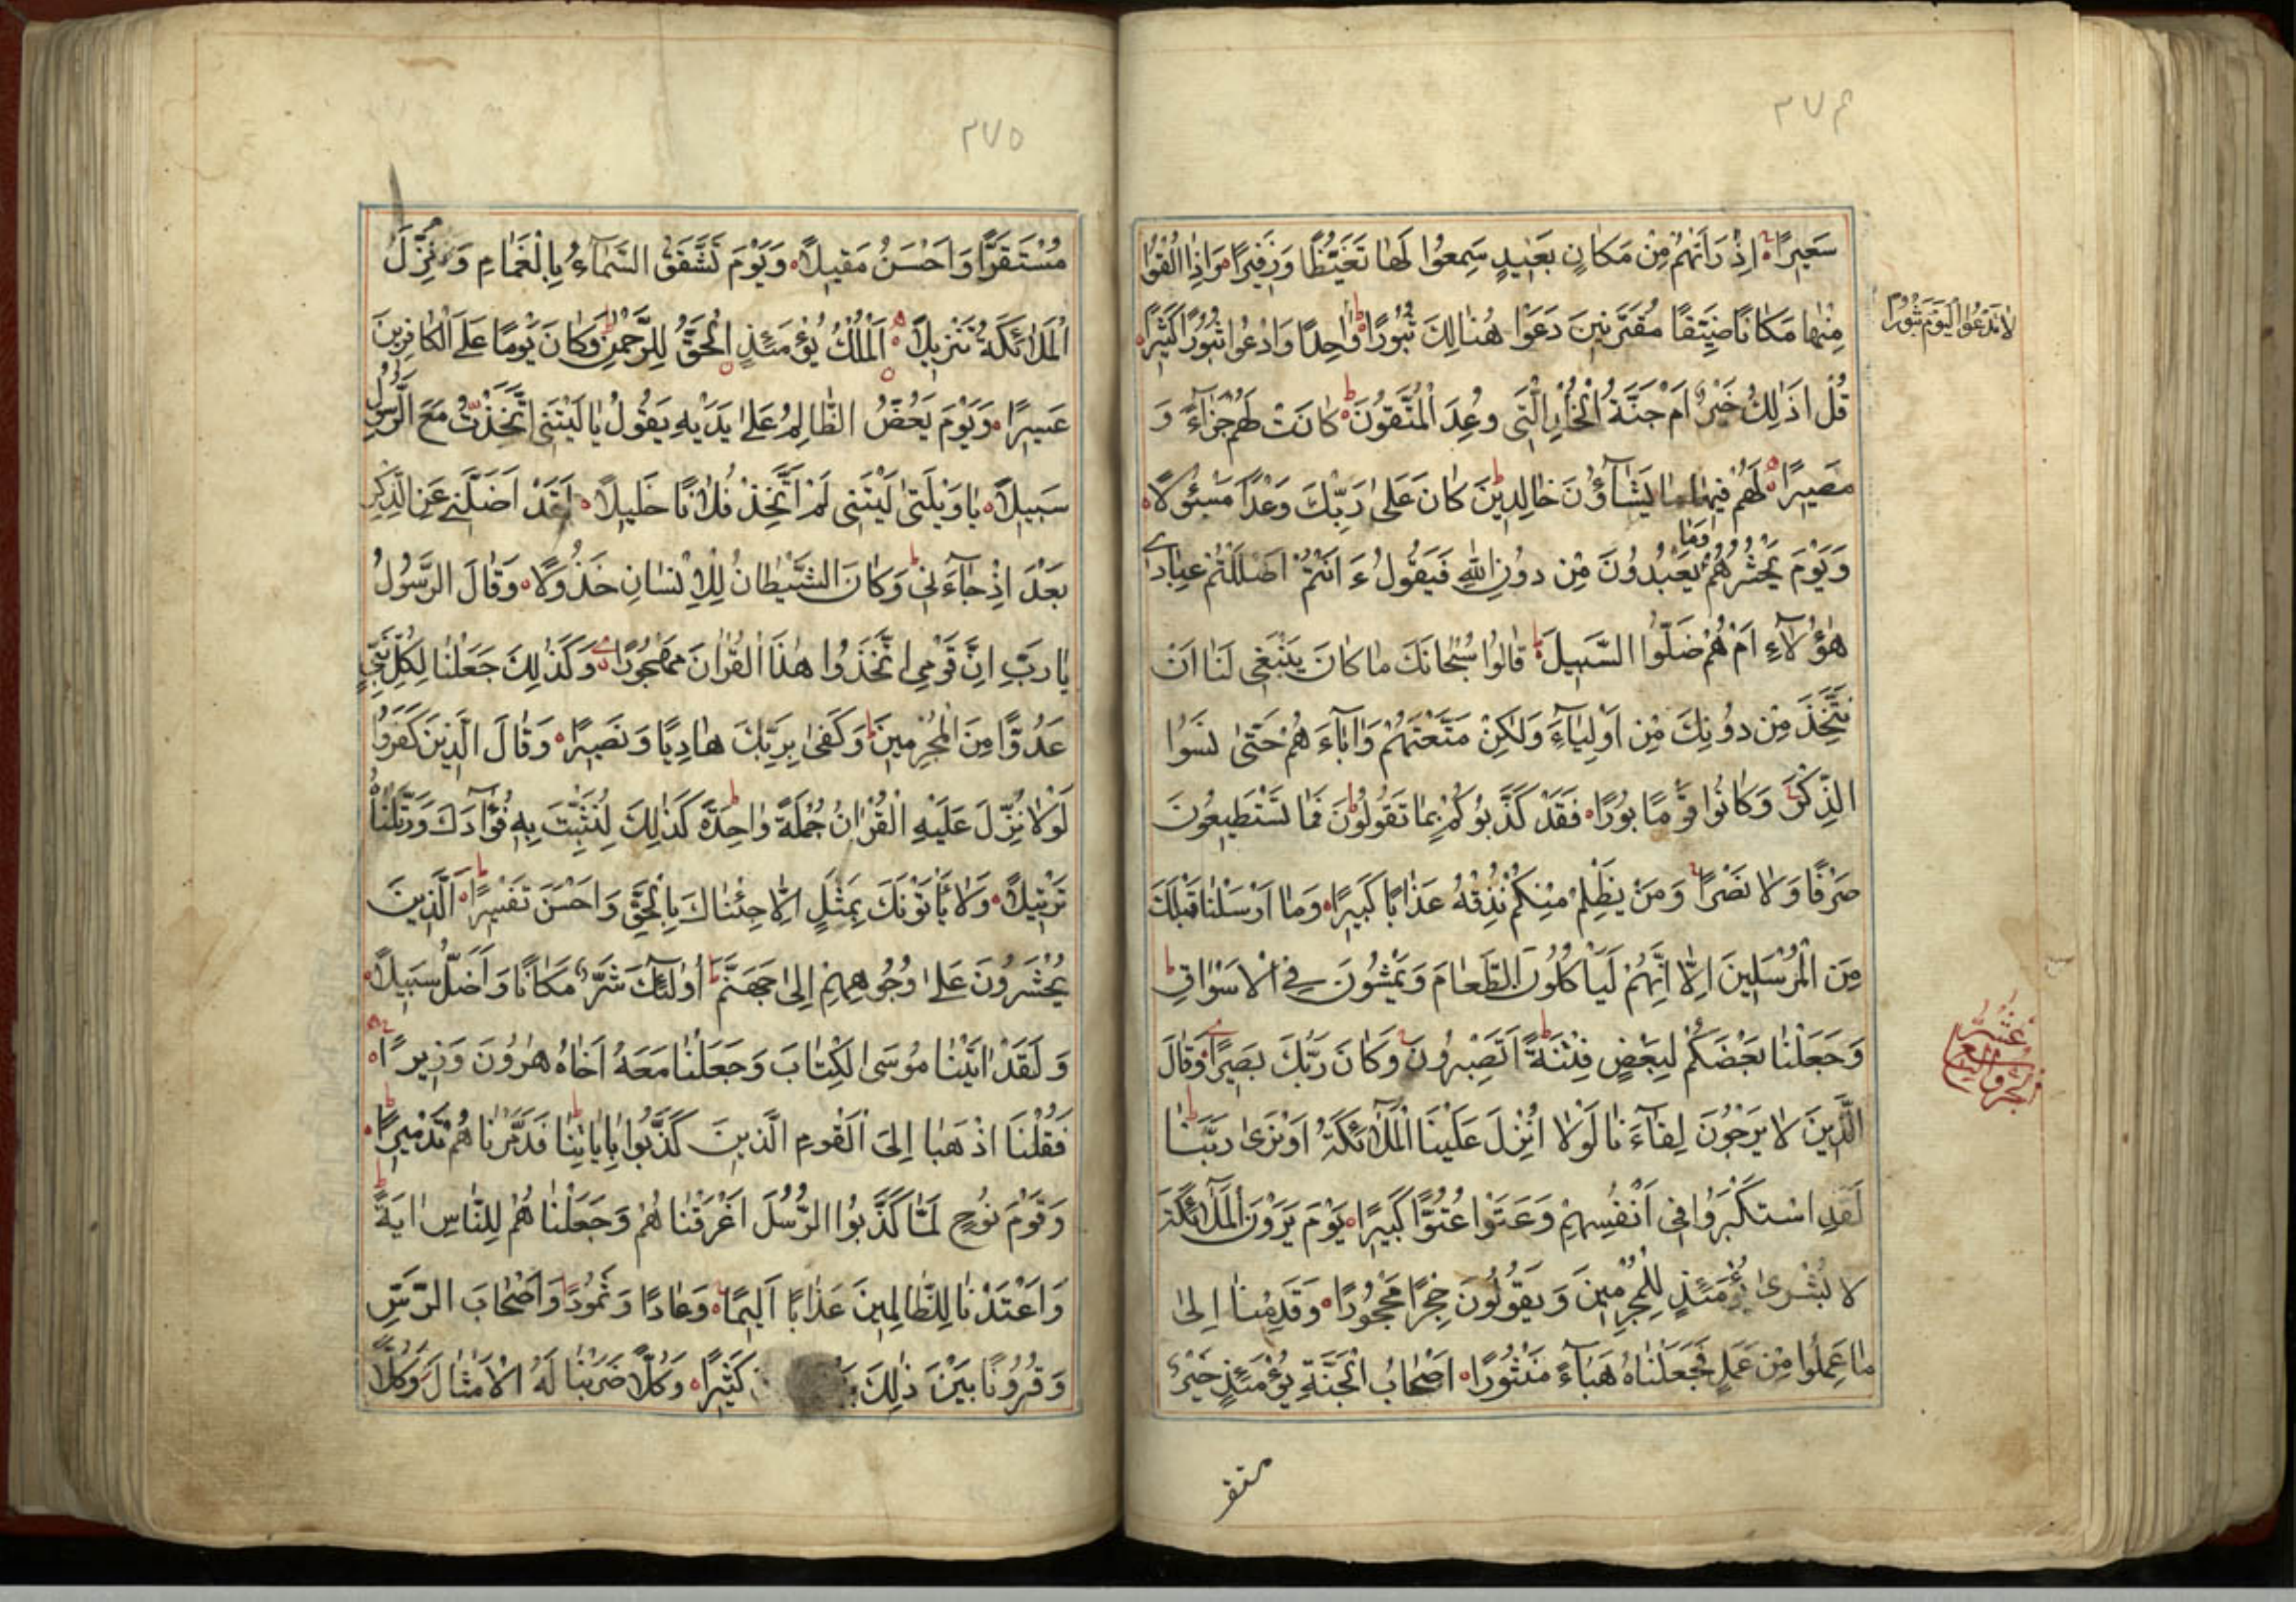 ٢٧٤
سَعِيرًا اِذْ رَاَتْهُمْ مِنْ مَكَانٍ بَعِيدٍ سَمِعُوا لَهَا تَغَيُّظًا وَزَفِيرًا وَاِذَا اُلْقُوا
مِنْهَا مَكَانًا ضَيِّقًا مُقَرَّنِينَ دَعَوْا هُنَالِكَ ثُبُورًا وَاحِدًا وَادْعُوا ثُبُورًا كَثِيرًا
لَا تَدْعُوا الْيَوْمَ ثُبُورًا
قُلْ اَذٰلِكَ خَيْرٌ اَمْ جَنَّةُ الْخُلْدِ الَّتِى وُعِدَ الْمُتَّقُونَ كَانَتْ لَهُمْ جَزَاءً وَ
مَصِيرًا لَهُمْ فِيهَا مَا يَشَاؤُنَ خَالِدِينَ كَانَ عَلٰى رَبِّكَ وَعْدًا مَسْئُولًا
وَيَوْمَ يَحْشُرُهُمْ وَمَا يَعْبُدُونَ مِنْ دُونِ اللهِ فَيَقُولُ ءَ اَنْتُمْ اَضْلَلْتُمْ عِبَادِى
هٰؤُلَاءِ اَمْ هُمْ ضَلُّوا السَّبِيلَ قَالُوا سُبْحَانَكَ مَا كَانَ يَنْبَغِى لَنَا اَنْ
نَتَّخِذَ مِنْ دُونِكَ مِنْ اَوْلِيَاءَ وَلٰكِنْ مَتَّعْتَهُمْ وَاٰبَاءَ هُمْ حَتّٰى نَسُوا
الذِّكْرَ وَكَانُوا قَوْمًا بُورًا فَقَدْ كَذَّبُوكُمْ بِمَا تَقُولُونَ فَمَا تَسْتَطِيعُونَ
صَرْفًا وَلَا نَصْرًا وَمَنْ يَظْلِمْ مِنْكُمْ نُذِقْهُ عَذَابًا كَبِيرًا وَمَا اَرْسَلْنَا قَبْلَكَ
مِنَ الْمُرْسَلِينَ اِلَّا اِنَّهُمْ لَيَاْكُلُونَ الطَّعَامَ وَيَمْشُونَ فِى الْاَسْوَاقِ
وَجَعَلْنَا بَعْضَكُمْ لِبَعْضٍ فِتْنَةً اَتَصْبِرُونَ وَكَانَ رَبُّكَ بَصِيرًا وَقَالَ
الَّذِينَ لَا يَرْجُونَ لِقَاءَ نَا لَوْلَا اُنْزِلَ عَلَيْنَا الْمَلَائِكَةُ اَوْ نَرٰى رَبَّنَا
لَقَدِ اسْتَكْبَرُوا فِى اَنْفُسِهِمْ وَعَتَوْا عُتُوًّا كَبِيرًا يَوْمَ يَرَوْنَ الْمَلَائِكَةَ
لَا بُشْرٰى يَوْمَئِذٍ لِلْمُجْرِمِينَ وَيَقُولُونَ حِجْرًا مَحْجُورًا وَقَدِمْنَا اِلٰى
مَا عَمِلُوا مِنْ عَمَلٍ فَجَعَلْنَاهُ هَبَاءً مَنْثُورًا اَصْحَابُ الْجَنَّةِ يَوْمَئِذٍ خَيْرٌ
مستقر
٢٧٥
مُسْتَقَرًّا وَاَحْسَنُ مَقِيلًا وَيَوْمَ تَشَّقَّقُ السَّمَاءُ بِالْغَمَامِ وَنُزِّلَ
الْمَلَائِكَةُ تَنْزِيلًا اَلْمُلْكُ يَوْمَئِذٍ الْحَقُّ لِلرَّحْمٰنِ وَكَانَ يَوْمًا عَلَى الْكَافِرِينَ
عَسِيرًا وَيَوْمَ يَعَضُّ الظَّالِمُ عَلٰى يَدَيْهِ يَقُولُ يَا لَيْتَنِى اتَّخَذْتُ مَعَ الرَّسُولِ
سَبِيلًا يَا وَيْلَتٰى لَيْتَنِى لَمْ اَتَّخِذْ فُلَانًا خَلِيلًا لَقَدْ اَضَلَّنِى عَنِ الذِّكْرِ
بَعْدَ اِذْ جَاءَنِى وَكَانَ الشَّيْطَانُ لِلْاِنْسَانِ خَذُولًا وَقَالَ الرَّسُولُ
يَا رَبِّ اِنَّ قَوْمِى اتَّخَذُوا هٰذَا الْقُرْاٰنَ مَهْجُورًا وَكَذٰلِكَ جَعَلْنَا لِكُلِّ نَبِىٍّ
عَدُوًّا مِنَ الْمُجْرِمِينَ وَكَفٰى بِرَبِّكَ هَادِيًا وَنَصِيرًا وَقَالَ الَّذِينَ كَفَرُوا
لَوْلَا نُزِّلَ عَلَيْهِ الْقُرْاٰنُ جُمْلَةً وَاحِدَةً كَذٰلِكَ لِنُثَبِّتَ بِهِ فُؤَادَكَ وَرَتَّلْنَاهُ
تَرْتِيلًا وَلَا يَاْتُونَكَ بِمَثَلٍ اِلَّا جِئْنَاكَ بِالْحَقِّ وَاَحْسَنَ تَفْسِيرًا اَلَّذِينَ
يُحْشَرُونَ عَلٰى وُجُوهِهِمْ اِلٰى جَهَنَّمَ اُولٰئِكَ شَرٌّ مَكَانًا وَاَضَلُّ سَبِيلًا
وَلَقَدْ اٰتَيْنَا مُوسَى الْكِتَابَ وَجَعَلْنَا مَعَهُ اَخَاهُ هٰرُونَ وَزِيرًا
فَقُلْنَا اذْهَبَا اِلَى الْقَوْمِ الَّذِينَ كَذَّبُوا بِاٰيَاتِنَا فَدَمَّرْنَا هُمْ تَدْمِيرًا
وَقَوْمَ نُوحٍ لَمَّا كَذَّبُوا الرُّسُلَ اَغْرَقْنَا هُمْ وَجَعَلْنَا هُمْ لِلنَّاسِ اٰيَةً
وَاَعْتَدْنَا لِلظَّالِمِينَ عَذَابًا اَلِيمًا وَعَادًا وَثَمُودًا وَاَصْحَابَ الرَّسِّ
وَقُرُونًا بَيْنَ ذٰلِكَ كَثِيرًا وَكُلًّا ضَرَبْنَا لَهُ الْاَمْثَالَ وَكُلًّا